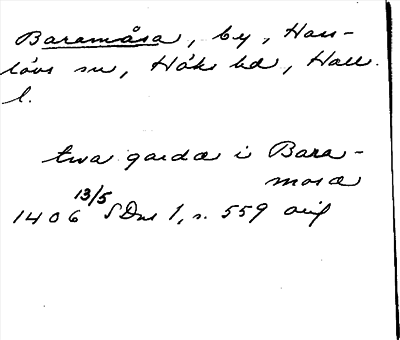 Baramåsa, by, Has-
lövs sn, Höks hd, Hall.
l.
twa garda i Bara-
mosa
1406 13/5 SDns 1, s. 559 orig